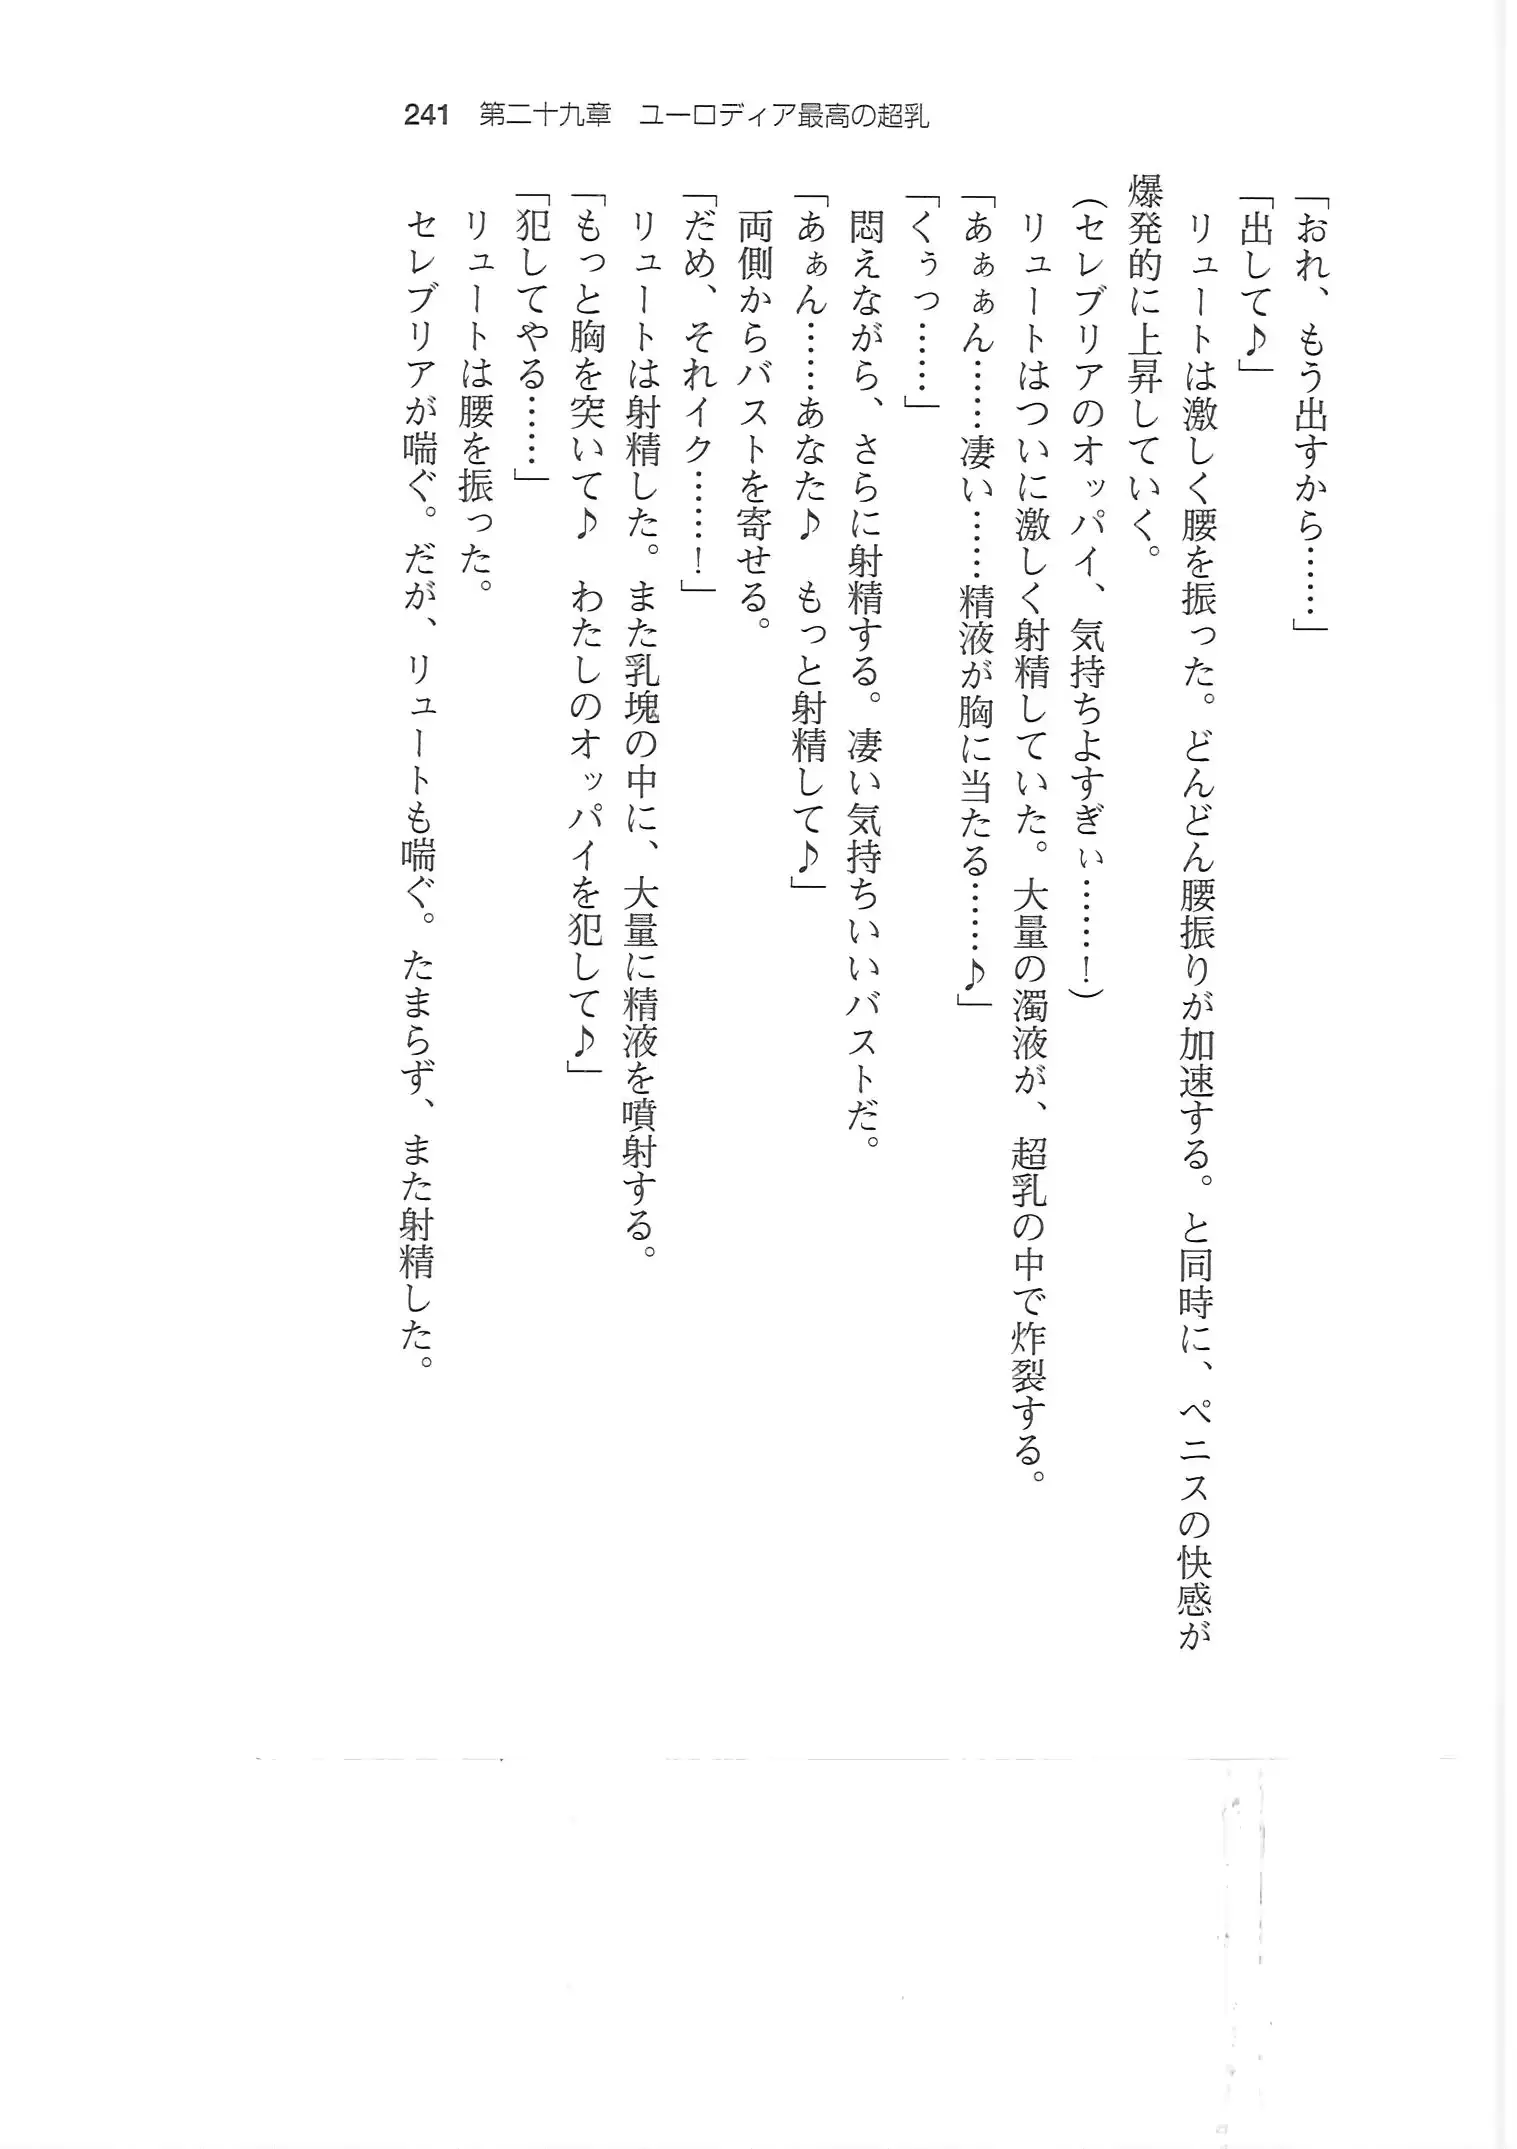 241 第二十九章 ユーロディア最高の超乳
「おれ、もう出すから……」
「出して♪」
リュートは激しく腰を振った。どんどん腰振りが加速する。と同時に、ペニスの快感が
爆発的に上昇していく。
(セレブリアのオッパイ、気持ちよすぎぃ……！)
リュートはついに激しく射精していた。大量の濁液が、超乳の中で炸裂する。
「あぁぁん……凄い……精液が胸に当たる……♪」
「くぅっ……」
悶えながら、さらに射精する。凄い気持ちいいバストだ。
「あぁん……あなた♪ もっと射精して♪」
両側からバストを寄せる。
「だめ、それイク……！」
リュートは射精した。また乳塊の中に、大量に精液を噴射する。
「もっと胸を突いて♪ わたしのオッパイを犯して♪」
「犯してやる……」
リュートは腰を振った。
セレブリアが喘ぐ。だが、リュートも喘ぐ。たまらず、また射精した。